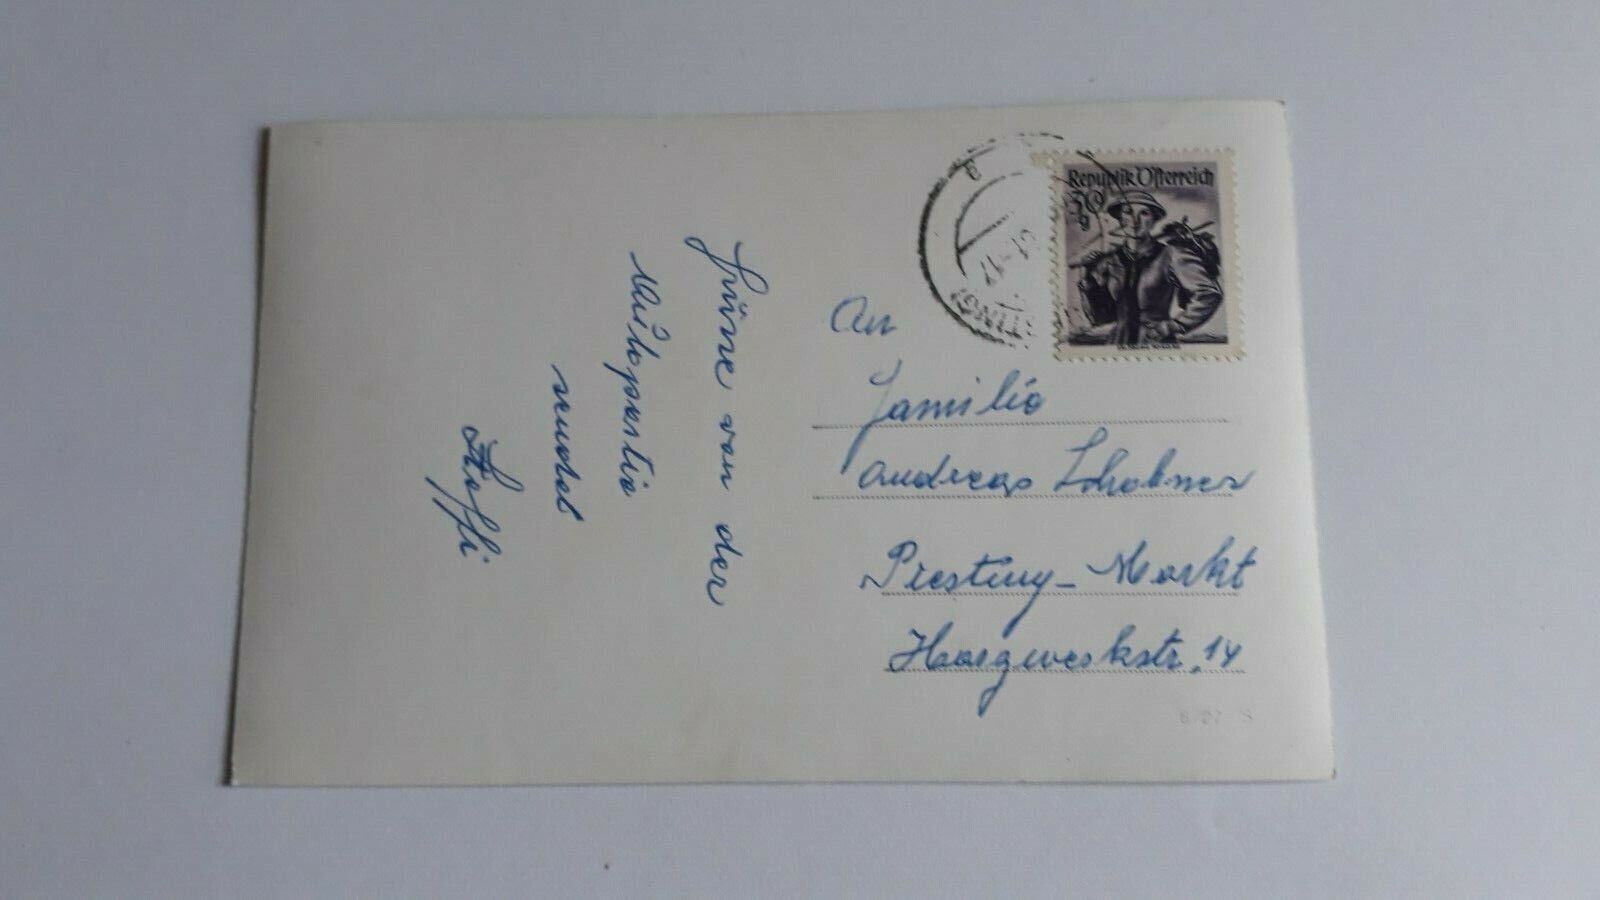 Grüsse von der
sendet
Steffi
Republik Österreich
30 g
An
Familie
Andreas Schobner
Piesting-Markt
Harzwerkstr. 14
6707 S